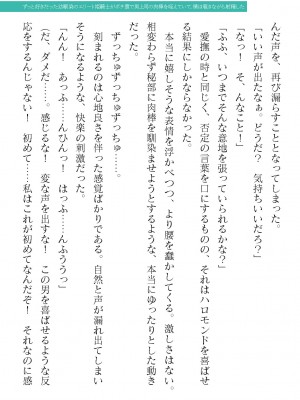 ずっと好きだった幼馴染のエリート姫騎士がボテ腹で
肉棒を咥えていて、僕は覗きながら射精した
んだ声を、再び漏らすこととなってしまった。
「いい声が出たなぁ。どうだ？　気持ちいいだろ？」
「なっ！　そ、んなこと！」
「ふふ、いつまでそんな意地を張っていられるかな？」
愛撫の時と同じく、否定の言葉を口にするものの、それはハロモンドを喜ばせ
る結果にしかならなかった。
本当に嬉しそうな表情を浮かべつつ、より腰を蠢かしてくる。激しさはない。
相変わらず秘部に肉棒を馴染ませようとするような、本当にゆったりとした動き
だ。
ずっちゅずっちゅずっちゅ……。
刻まれるのは心地良さを伴った感覚ばかりである。自然と声が漏れ出てしまい
そうになるような、快楽の刺激だった。
「んんっ！　あっふ……んひんっ！　はっふ……んふううっ」
（だ、ダメだ……。感じるな！　変な声を出すな！　この男を喜ばせるような反
応をするんじゃない！　初めて……私はこれが初めてなんだぞ！　それなのに感